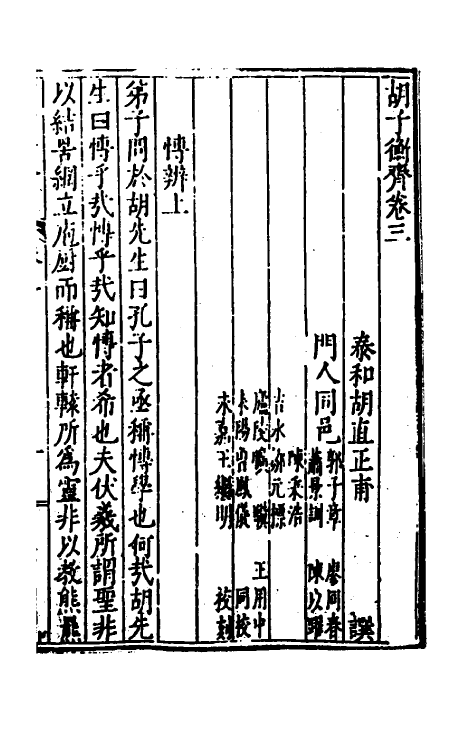 胡子衡齊卷三
泰和胡直正甫 譔
門人同邑郭子章 廖同春
蕭景訓 陳以躍
陳秉浩
吉水鄒元標
王用中
同校
永嘉王繼明 校刻
博辨上
弟子問於胡先生曰孔子之亟稱博學也何㢤胡先
生曰博乎㢤博乎㢤知博者希也夫伏羲所謂聖非
以結罟網立庖厨而稱也軒轅所爲靈非以教熊羆